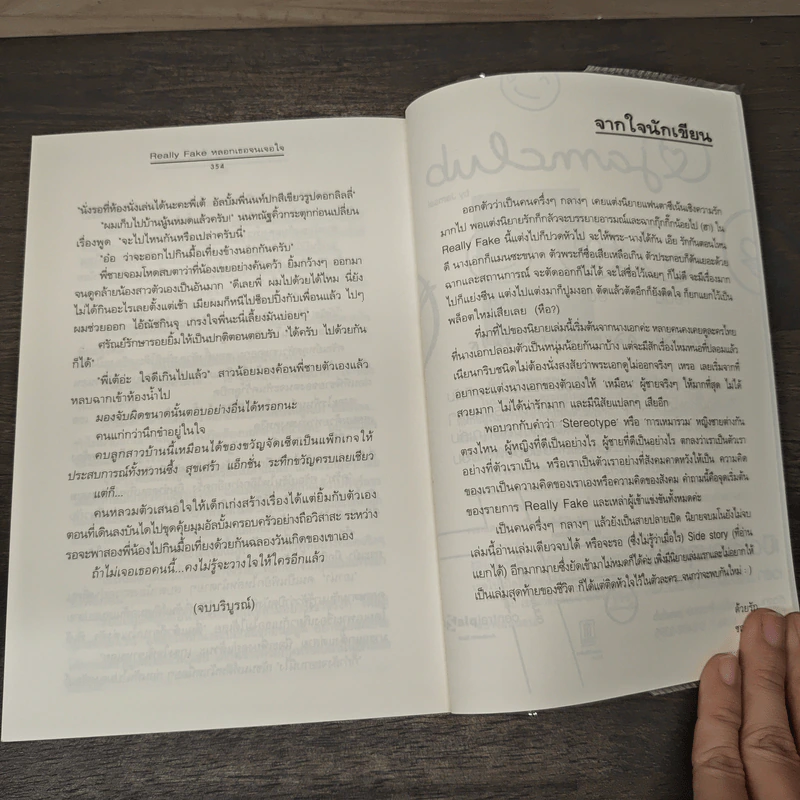 Really Fake หลอกเธอจนเจอใจ
354
"นั่งรอที่ห้องนั่งเล่นได้นะคะพี่เต้ อัลบั้มพี่นนท์ปกสีเขียวรูปดอกลิลลี่"
"ผมเก็บไปบ้านนู้นหมดแล้วครับ!" นนทณัฐคิ้วกระตุกก่อนเปลี่ยน
เรื่องพูด "จะไปไหนกันหรือเปล่าครับนี่"
"อ๋อ ว่าจะออกไปกินมื้อเที่ยงข้างนอกกันครับ"
พี่ชายจอมโหดสบตาว่าที่น้องเขยอย่างค้นคว้า ยิ้มกว้างๆ ออกมา
จนดูคล้ายน้องสาวตัวเองเป็นอันมาก "ดีเลยพี่ ผมไปด้วยได้ไหม นี่ยัง
ไม่ได้กินอะไรเลยตั้งแต่เช้า เมียผมก็หนีไปช็อปปิ้งกับเพื่อนแล้ว ไปๆ
ผมช่วยออก ไอ้ณัชกินจุ เกรงใจพี่นะนี่เลี้ยงมันบ่อยๆ"
ศรัณย์รักษารอยยิ้มให้เป็นปกติตอนตอบรับ "ได้ครับ ไปด้วยกัน
ก็ได้"
"พี่เต้อ่ะ ใจดีเกินไปแล้ว" สาวน้อยมองค้อนพี่ชายตัวเองแล้ว
หลบฉากเข้าห้องน้ำไป
มองจับผิดขนาดนั้นตอบอย่างอื่นได้หรอกนะ
คนแก่กว่านึกขำอยู่ในใจ
คบลูกสาวบ้านนี้เหมือนได้ของขวัญจัดเซ็ตเป็นแพ็กเกจให้
ประสบการณ์ทั้งหวานซึ้ง สุขเศร้า แอ็กชั่น ระทึกขวัญครบเลยเชียว
แต่ก็...
คนหลวมตัวเสนอใจให้เด็กเก่งสร้างเรื่องได้แต่ยิ้มกับตัวเอง
ตอนที่เดินลงบันไดไปขุดคุ้ยมุมอัลบั้มครอบครัวอย่างถือวิสาสะ ระหว่าง
รอจะพาสองพี่น้องไปกินมื้อเที่ยงด้วยกันฉลองวันเกิดของเขาเอง
ถ้าไม่เจอเธอคนนี้...คงไม่รู้จะวางใจให้ใครอีกแล้ว
(จบบริบูรณ์)
จากใจนักเขียน
ออกตัวว่าเป็นคนครึ่งๆ กลางๆ เคยแต่งนิยายแฟนตาซีเน้นเชิงความรัก
มากไป พอแต่งนิยายรักก็กลัวจะบรรยายอารมณ์และฉากกุ๊กกิ๊กน้อยไป (ฮา) ใน
Really Fake นี้แต่งไปก็ปวดหัวไป จะให้พระ-นางได้กัน เอ้ย รักกันตอนไหน
ดี นางเอกก็แมนซะขนาด ตัวพระก็ซื่อเสียเหลือเกิน ตัวประกอบก็ดันเยอะด้วย
ฉากและสถานการณ์ จะตัดออกก็ไม่ได้ จะใส่ซื่อไว้เฉยๆ ก็ไม่ดี จะมีเรื่องมาก
ไปก็แย่งซีน แต่งไปแต่งมาก็ปูมงอก ตัดแล้วตัดอีกก็ยังติดใจ ก็ยกแยกไว้เป็น
พล็อตใหม่เสียเลย (หือ?)
ที่มาที่ไปของนิยายเล่มนี้เริ่มต้นจากนางเอกค่ะ หลายคนคงเคยดูละครไทย
ที่นางเอกปลอมตัวเป็นหนุ่มน้อยกันมาบ้าง แต่จะมีสักเรื่องไหมหนอที่ปลอมแล้ว
เนียนกริบชนิดไม่ต้องนั่งสงสัยว่าพระเอกดูไม่ออกจริงๆ เหรอ เลยเริ่มจากที่
อยากจะแต่งนางเอกของตัวเองให้ 'เหมือน' ผู้ชายจริงๆ ให้มากที่สุด ไม่ได้
สวยมาก ไม่ได้น่ารักมาก และมีนิสัยแปลกๆ เสียอีก
พอบวกกับคำว่า 'Stereotype' หรือ 'การเหมารวม' หญิงชายต่างกัน
ตรงไหน ผู้หญิงที่ดีเป็นอย่างไร ผู้ชายที่ดีเป็นอย่างไร ตกลงว่าเราเป็นตัวเรา
อย่างที่ตัวเราเป็น หรือเราเป็นตัวเราอย่างที่สังคมคาดหวังให้เป็น ความคิด
ของเราเป็นความคิดของเราเองหรือความคิดของสังคม คำถามนี้คือจุดเริ่มต้น
ของรายการ Really Fake และเหล่าผู้เข้าแข่งขันทั้งหมดค่ะ
เป็นคนครึ่งๆ กลางๆ แล้วยังเป็นสายปลายเปิด นิยายจบมโนยังไม่จบ
เล่มนี้อ่านเล่มเดียวจบได้ หรือจะรอ (ซึ่งไม่รู้ว่าเมื่อไร) Side story (ที่อ่าน
แยกได้) อีกมากมายซึ่งยัดเข้ามาไม่หมดก็ได้ค่ะ เพิ่งมีนิยายเล่มแรกและไม่อยากให้
เป็นเล่มสุดท้ายของชีวิต ก็ได้แต่ติดหัวใจไว้ในตัวละคร..จนกว่าจะพบกันใหม่ :)
ด้วยรัก